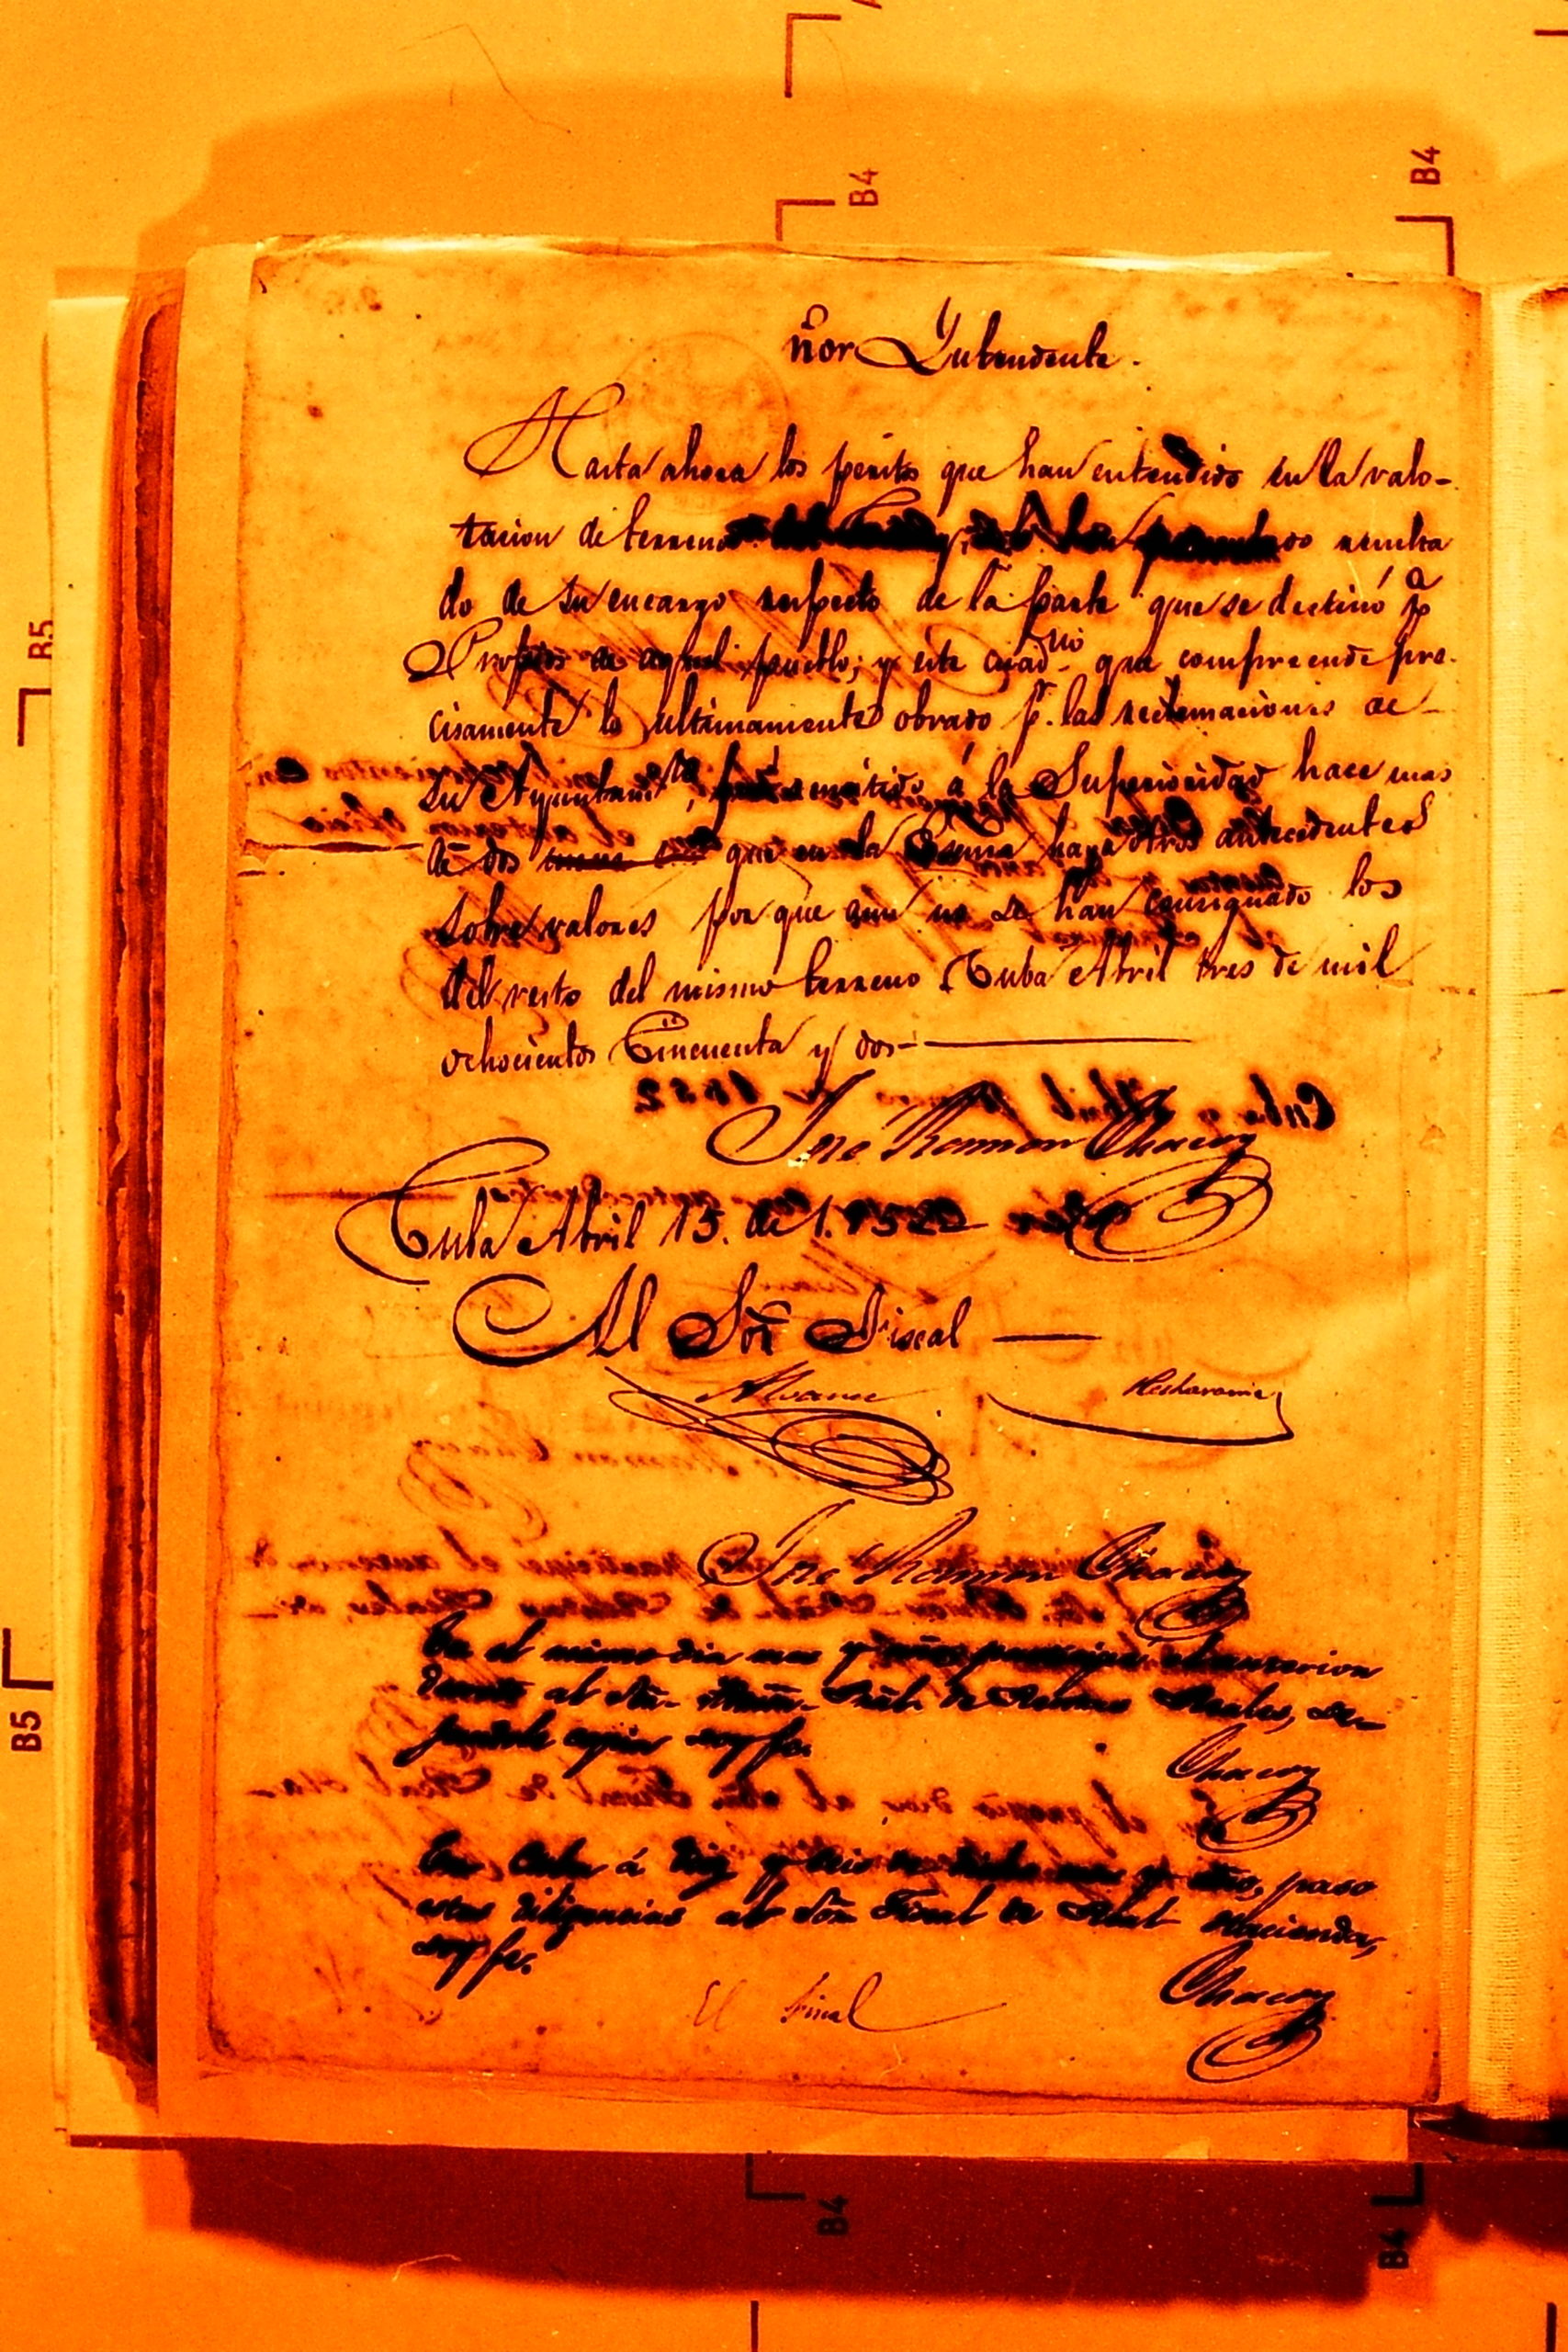 ñor Yntendente.
Hasta ahora los peritos que han entendido en la valo-
tacion de terrenos do resulta
do de su encargo respecto de la parte que se destinó pª
Propios de aquel pueblo; y este cuadno que comprende pre-
cisamente lo ultimamente obrado pr. las reclamaciones de
su Ayuntamto, remitido á la Superioridad hace mas
de dos que en la haya otros antecedentes
sobre valores por que aun no se han consignado los
del resto del mismo terreno. Cuba Abril tres de mil
ochocientos Cincuenta y dos-
José Ramon Chacon
Cuba Abril 15. de 1.852
Al Sor Fiscal
Alvarez
José Ramon Chacon
En el mismo dia mes y año el anterior
al Sor. de Reales, de-
jandole copia doy fe.
Chacon
En Cuba á diez y seis de dicho mes y año, paso
estas diligencias al Sor Fiscal de Real Hacienda,
doy fe.
Chacon
El Fiscal
B4
B4
B5
B5
B4
B4